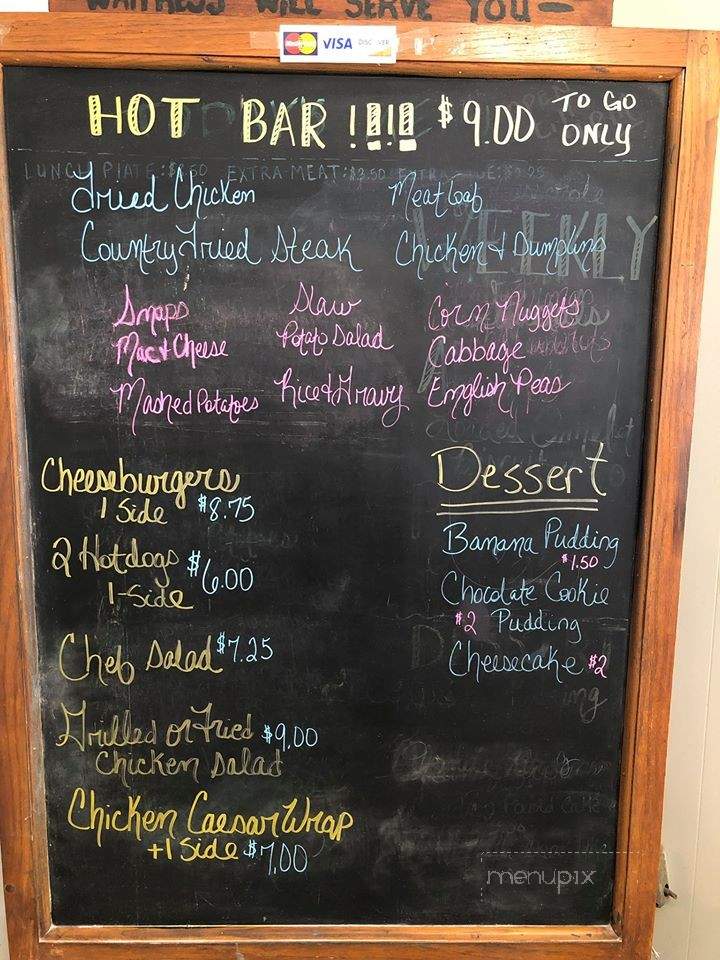 WAITRESS WILL SERVE YOU —
MasterCard VISA DISCOVER
HOT BAR !!!! $9.00 TO GO ONLY
LUNCH PLATE: EXTRA MEAT: $3.50
Fried Chicken Meatloaf
Country Fried Steak Chicken & Dumplins
WEEKLY
Snaps Slaw Corn Nuggets
Mac & Cheese Potato Salad Cabbage
Mashed Potatoes Rice & Gravy English Peas
Cheeseburgers
1 Side $8.75
2 Hotdogs $6.00
1-Side
Chef Salad $7.25
Grilled or Fried $9.00
Chicken Salad
Chicken Caesar Wrap
+1 Side $7.00
Dessert
Banana Pudding
$1.50
Chocolate Cookie
$2 Pudding
Cheesecake $2
menupix